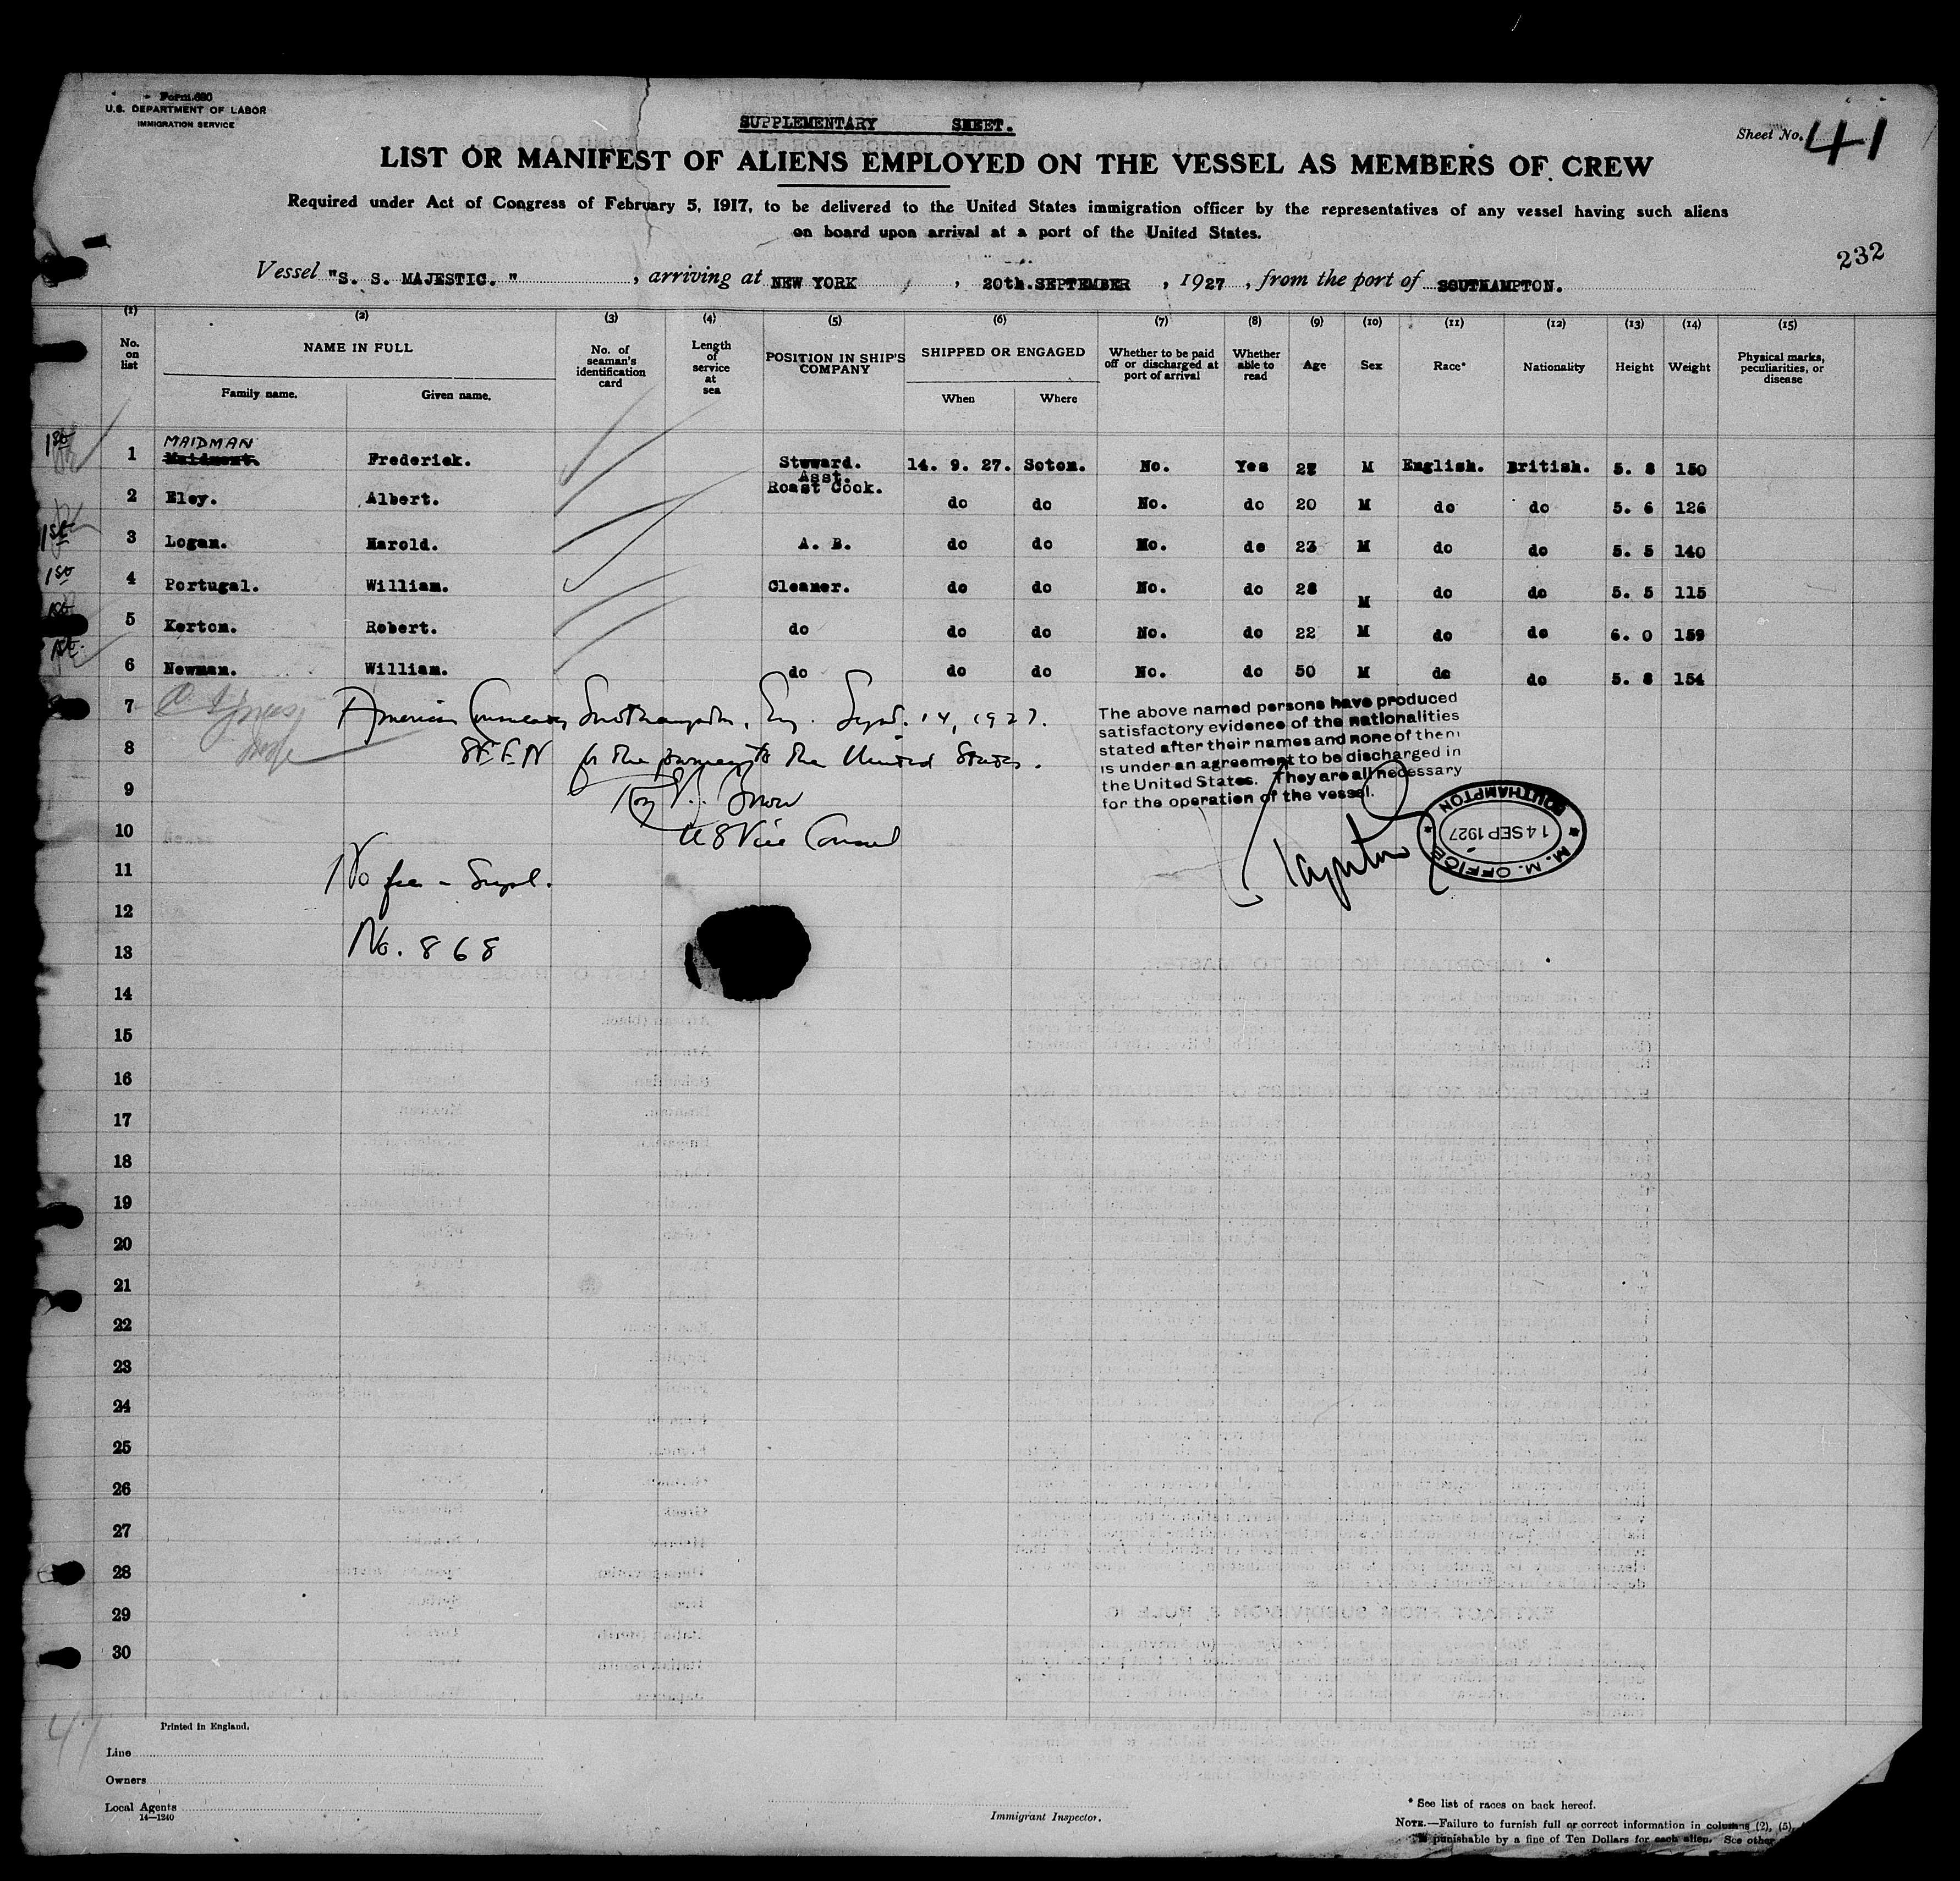 Form 680
U.S. DEPARTMENT OF LABOR
IMMIGRATION SERVICE
SUPPLEMENTARY SHEET.
Sheet No. 41
LIST OR MANIFEST OF ALIENS EMPLOYED ON THE VESSEL AS MEMBERS OF CREW
Required under Act of Congress of February 5, 1917, to be delivered to the United States immigration officer by the representatives of any vessel having such aliens
on board upon arrival at a port of the United States.
232
Vessel "S. S. MAJESTIC. ", arriving at NEW YORK, 20th. SEPTEMBER, 1927, from the port of SOUTHAMPTON.
(1) (2) (3) (4) (5) (6) (7) (8) (9) (10) (11) (12) (13) (14) (15)
No. on list NAME IN FULL Family name. Given name. No. of seaman's identification card Length of service at sea POSITION IN SHIP'S COMPANY SHIPPED OR ENGAGED When Where Whether to be paid off or discharged at port of arrival Whether able to read Age Sex Race* Nationality Height Weight Physical marks, peculiarities, or disease
MAIDMAN
1st 1 Maidment. Frederick. Steward. 14. 9. 27. Soton. No. Yes M English. British. 5. 8 150
2 Eley. Albert. Asst. Roast Cook. do do No. do 20 M do do 5. 6 126
1st 3 Logan. Harold. A. B. do do No. do 23 M do do 5. 5 140
1st 4 Portugal. William. Cleaner. do do No. do 28 M do do 5. 5 115
1st 5 Kerton. Robert. do do do No. do 22 M do do 6. 0 159
1st 6 Newman. William. do do do No. do 50 M do do 5. 8 154
7 American Consulate, Southampton, Eng. Sept. 14, 1927.
8 SEEN for the journey to the United States.
9 Snow
10 US Vice Consul
The above named persons have produced
satisfactory evidence of the nationalities
stated after their names and none of them
is under an agreement to be discharged in
the United States. They are all necessary
for the operation of the vessel.
M. M. OFFICE
14 SEP 1927
SOUTHAMPTON
11 No fee - Suppl.
12
13 No. 868
14
15
16
17
18
19
20
21
22
23
24
25
26
27
28
29
30
47
Printed in England.
Line
Owners
Local Agents
14—1240
Immigrant Inspector.
* See list of races on back hereof.
NOTE.—Failure to furnish full or correct information in columns (2), (5),
is punishable by a fine of Ten Dollars for each alien. See other